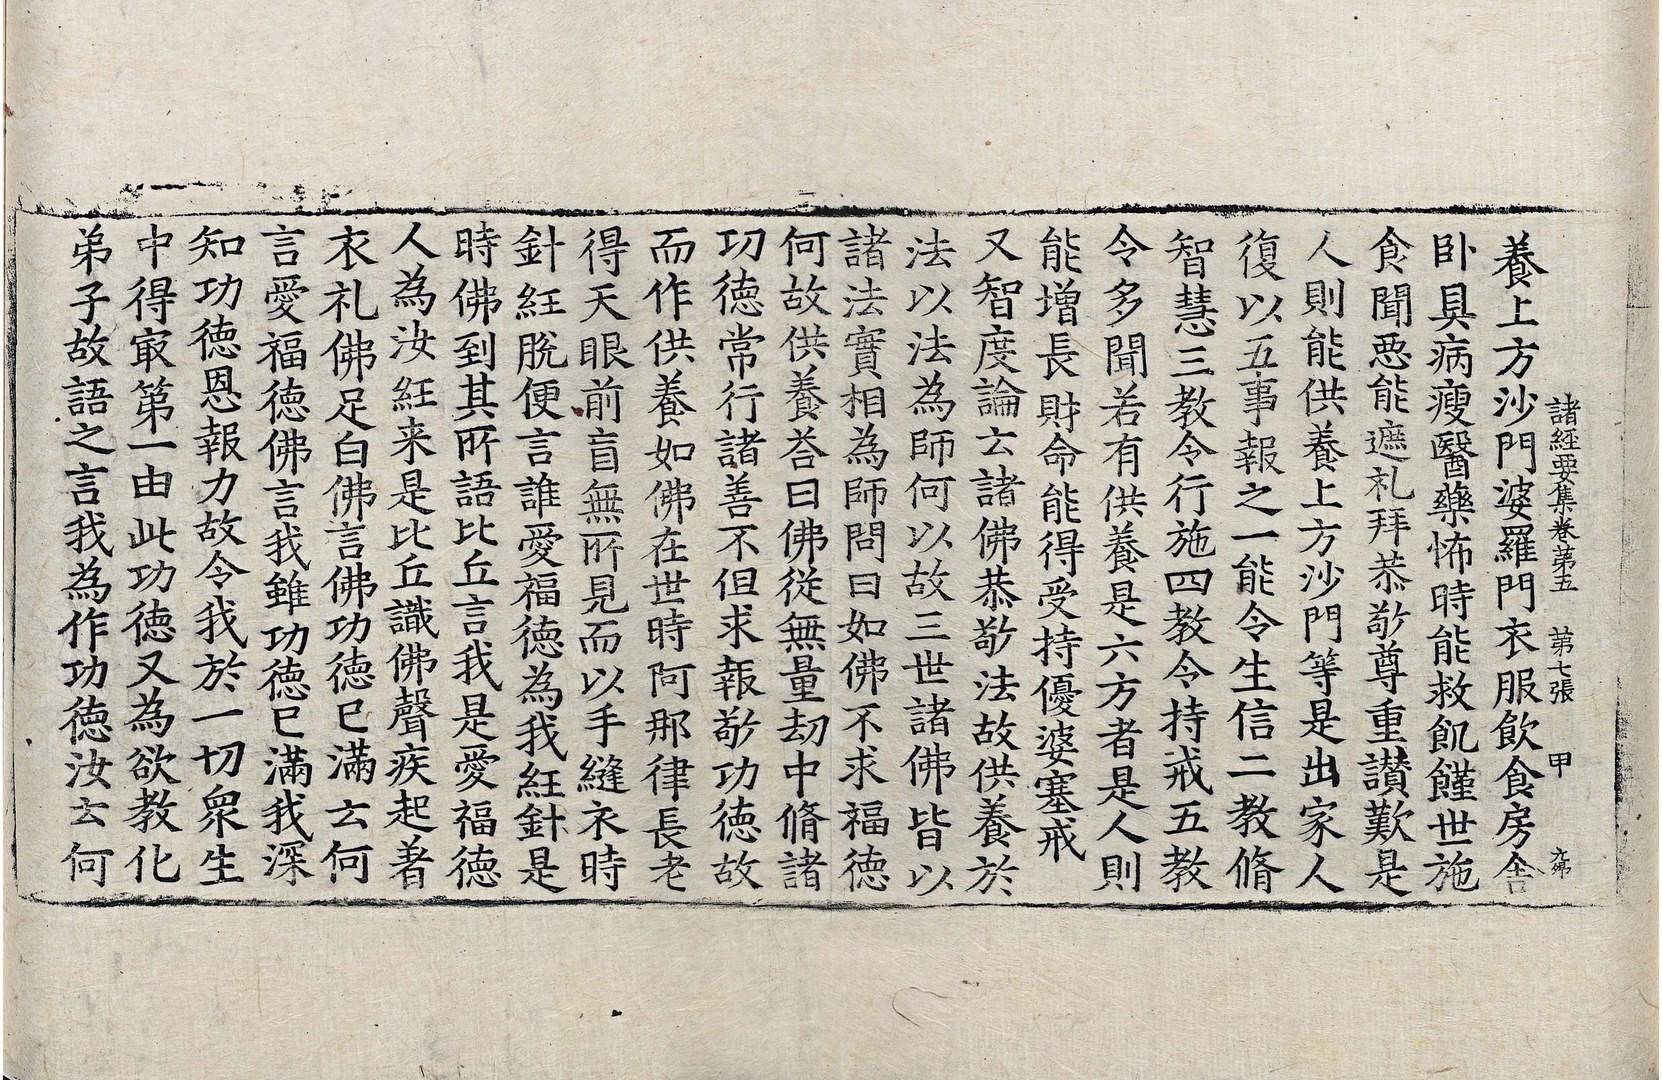 養上方沙門婆羅門衣服飲食房舍
諸經要集卷第五　第七張　甲
卧具病瘦醫藥怖時能救飢饉世施
食聞惡能遮礼拜恭敬尊重讃歎是
人則能供養上方沙門等是出家人
復以五事報之一能令生信二教脩
智慧三教令行施四教令持戒五教
令多聞若有供養是六方者是人則
能增長財命能得受持優婆塞戒
又智度論云諸佛恭敬法故供養於
法以法為師何以故三世諸佛皆以
諸法實相為師問曰如佛不求福德
何故供養荅曰佛從無量劫中脩諸
功德常行諸善不但求報敬功德故
而作供養如佛在世時阿那律長老
得天眼前盲無所見而以手縫衣時
針紝脫便言誰愛福德為我紝針是
時佛到其所語比丘言我是愛福德
人為汝紝来是比丘識佛聲疾起著
衣礼佛足白佛言佛功德已滿云何
言愛福德佛言我雖功德已滿我深
知功德恩報力故令我於一切衆生
中得㝡第一由此功德又為欲教化
弟子故語之言我為作功德汝云何